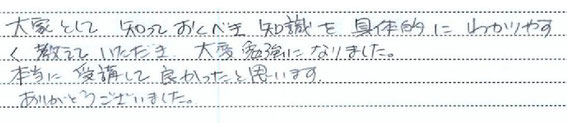 大家として 知っておくべき 知識を 具体的に わかりやす
く 教えていただき 大変勉強になりました。
本当に 受講して 良かったと思います
ありがとうございました。